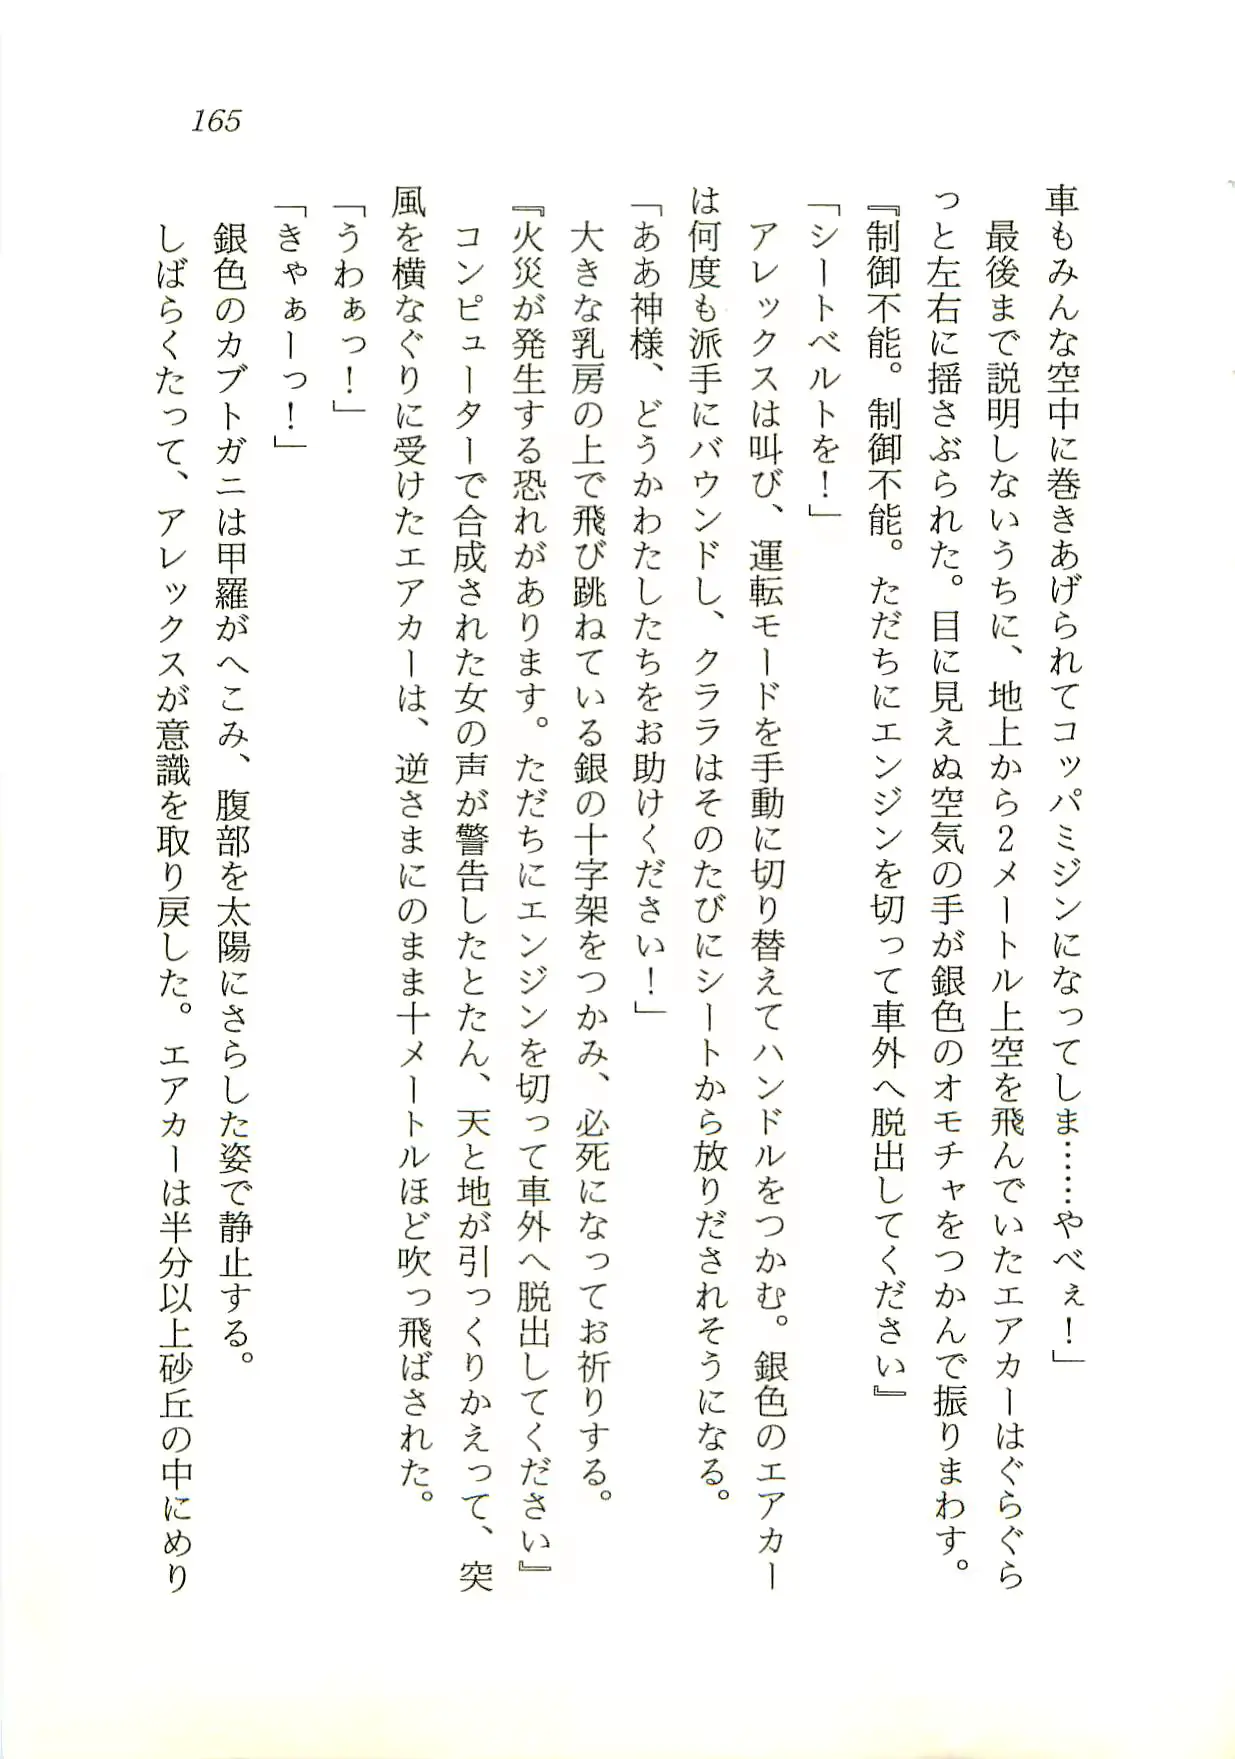 165
車もみんな空中に巻きあげられてコッパミジンになってしま……やべぇ！」
　最後まで説明しないうちに、地上から2メートル上空を飛んでいたエアカーはぐらぐら
っと左右に揺さぶられた。目に見えぬ空気の手が銀色のオモチャをつかんで振りまわす。
『制御不能。制御不能。ただちにエンジンを切って車外へ脱出してください』
「シートベルトを！」
　アレックスは叫び、運転モードを手動に切り替えてハンドルをつかむ。銀色のエアカー
は何度も派手にバウンドし、クララはそのたびにシートから放りだされそうになる。
「ああ神様、どうかわたしたちをお助けください！」
　大きな乳房の上で飛び跳ねている銀の十字架をつかみ、必死になってお祈りする。
『火災が発生する恐れがあります。ただちにエンジンを切って車外へ脱出してください』
　コンピューターで合成された女の声が警告したとたん、天と地が引っくりかえって、突
風を横なぐりに受けたエアカーは、逆さまにのまま十メートルほど吹っ飛ばされた。
「うわぁっ！」
「きゃぁーっ！」
　銀色のカブトガニは甲羅がへこみ、腹部を太陽にさらした姿で静止する。
　しばらくたって、アレックスが意識を取り戻した。エアカーは半分以上砂丘の中にめり